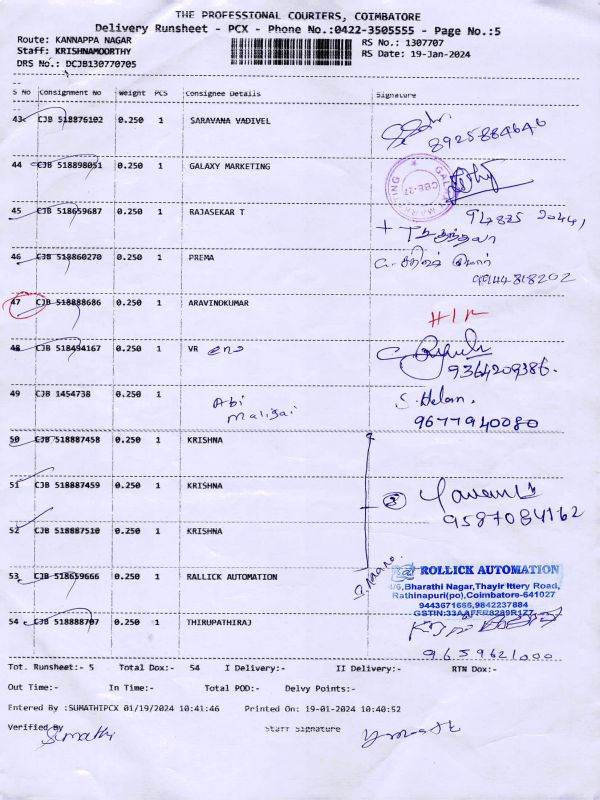 THE PROFESSIONAL COURIERS, COIMBATORE
Delivery Runsheet - PCX - Phone No.:0422-3505555 - Page No.:5
Route: KANNAPPA NAGAR RS No.: 1307707
Staff: KRISHNAMOORTHY RS Date: 19-Jan-2024
DRS No.: DCJB130770705
S No Consignment No Weight PCS Consignee Details Signature
43 CJB 518876102 0.250 1 SARAVANA VADIVEL
8925884646
44 CJB 518898051 0.250 1 GALAXY MARKETING
45 CJB 518659687 0.250 1 RAJASEKAR T
46 CJB 518860270 0.250 1 PREMA
47 CJB 518888686 0.250 1 ARAVINDKUMAR
48 CJB 518494167 0.250 1 VR
9364209386.
49 CJB 1454738 0.250 1 Abi S. Helan
9677940080
50 CJB 518887458 0.250 1 KRISHNA
51 CJB 518887459 0.250 1 KRISHNA 3
9587084162
52 CJB 518887510 0.250 1 KRISHNA
53 CJB 518659666 0.250 1 RALLICK AUTOMATION ROLLICK AUTOMATION
4/6,Bharathi Nagar,Thayir Ittery Road,
Rathinapuri(po),Coimbatore-641027
9443671666,9842237884
54 CJB 518888707 0.250 1 THIRUPATHIRAJ
9659621000
Tot. Runsheet:- 5 Total Dox:- 54 I Delivery:- II Delivery:- RTN Dox:-
Out Time:- In Time:- Total POD:- Delvy Points:-
Entered By :SUMATHIPCX 01/19/2024 10:41:46 Printed On: 19-01-2024 10:40:52
Verified By Staff Signature
Sumathi